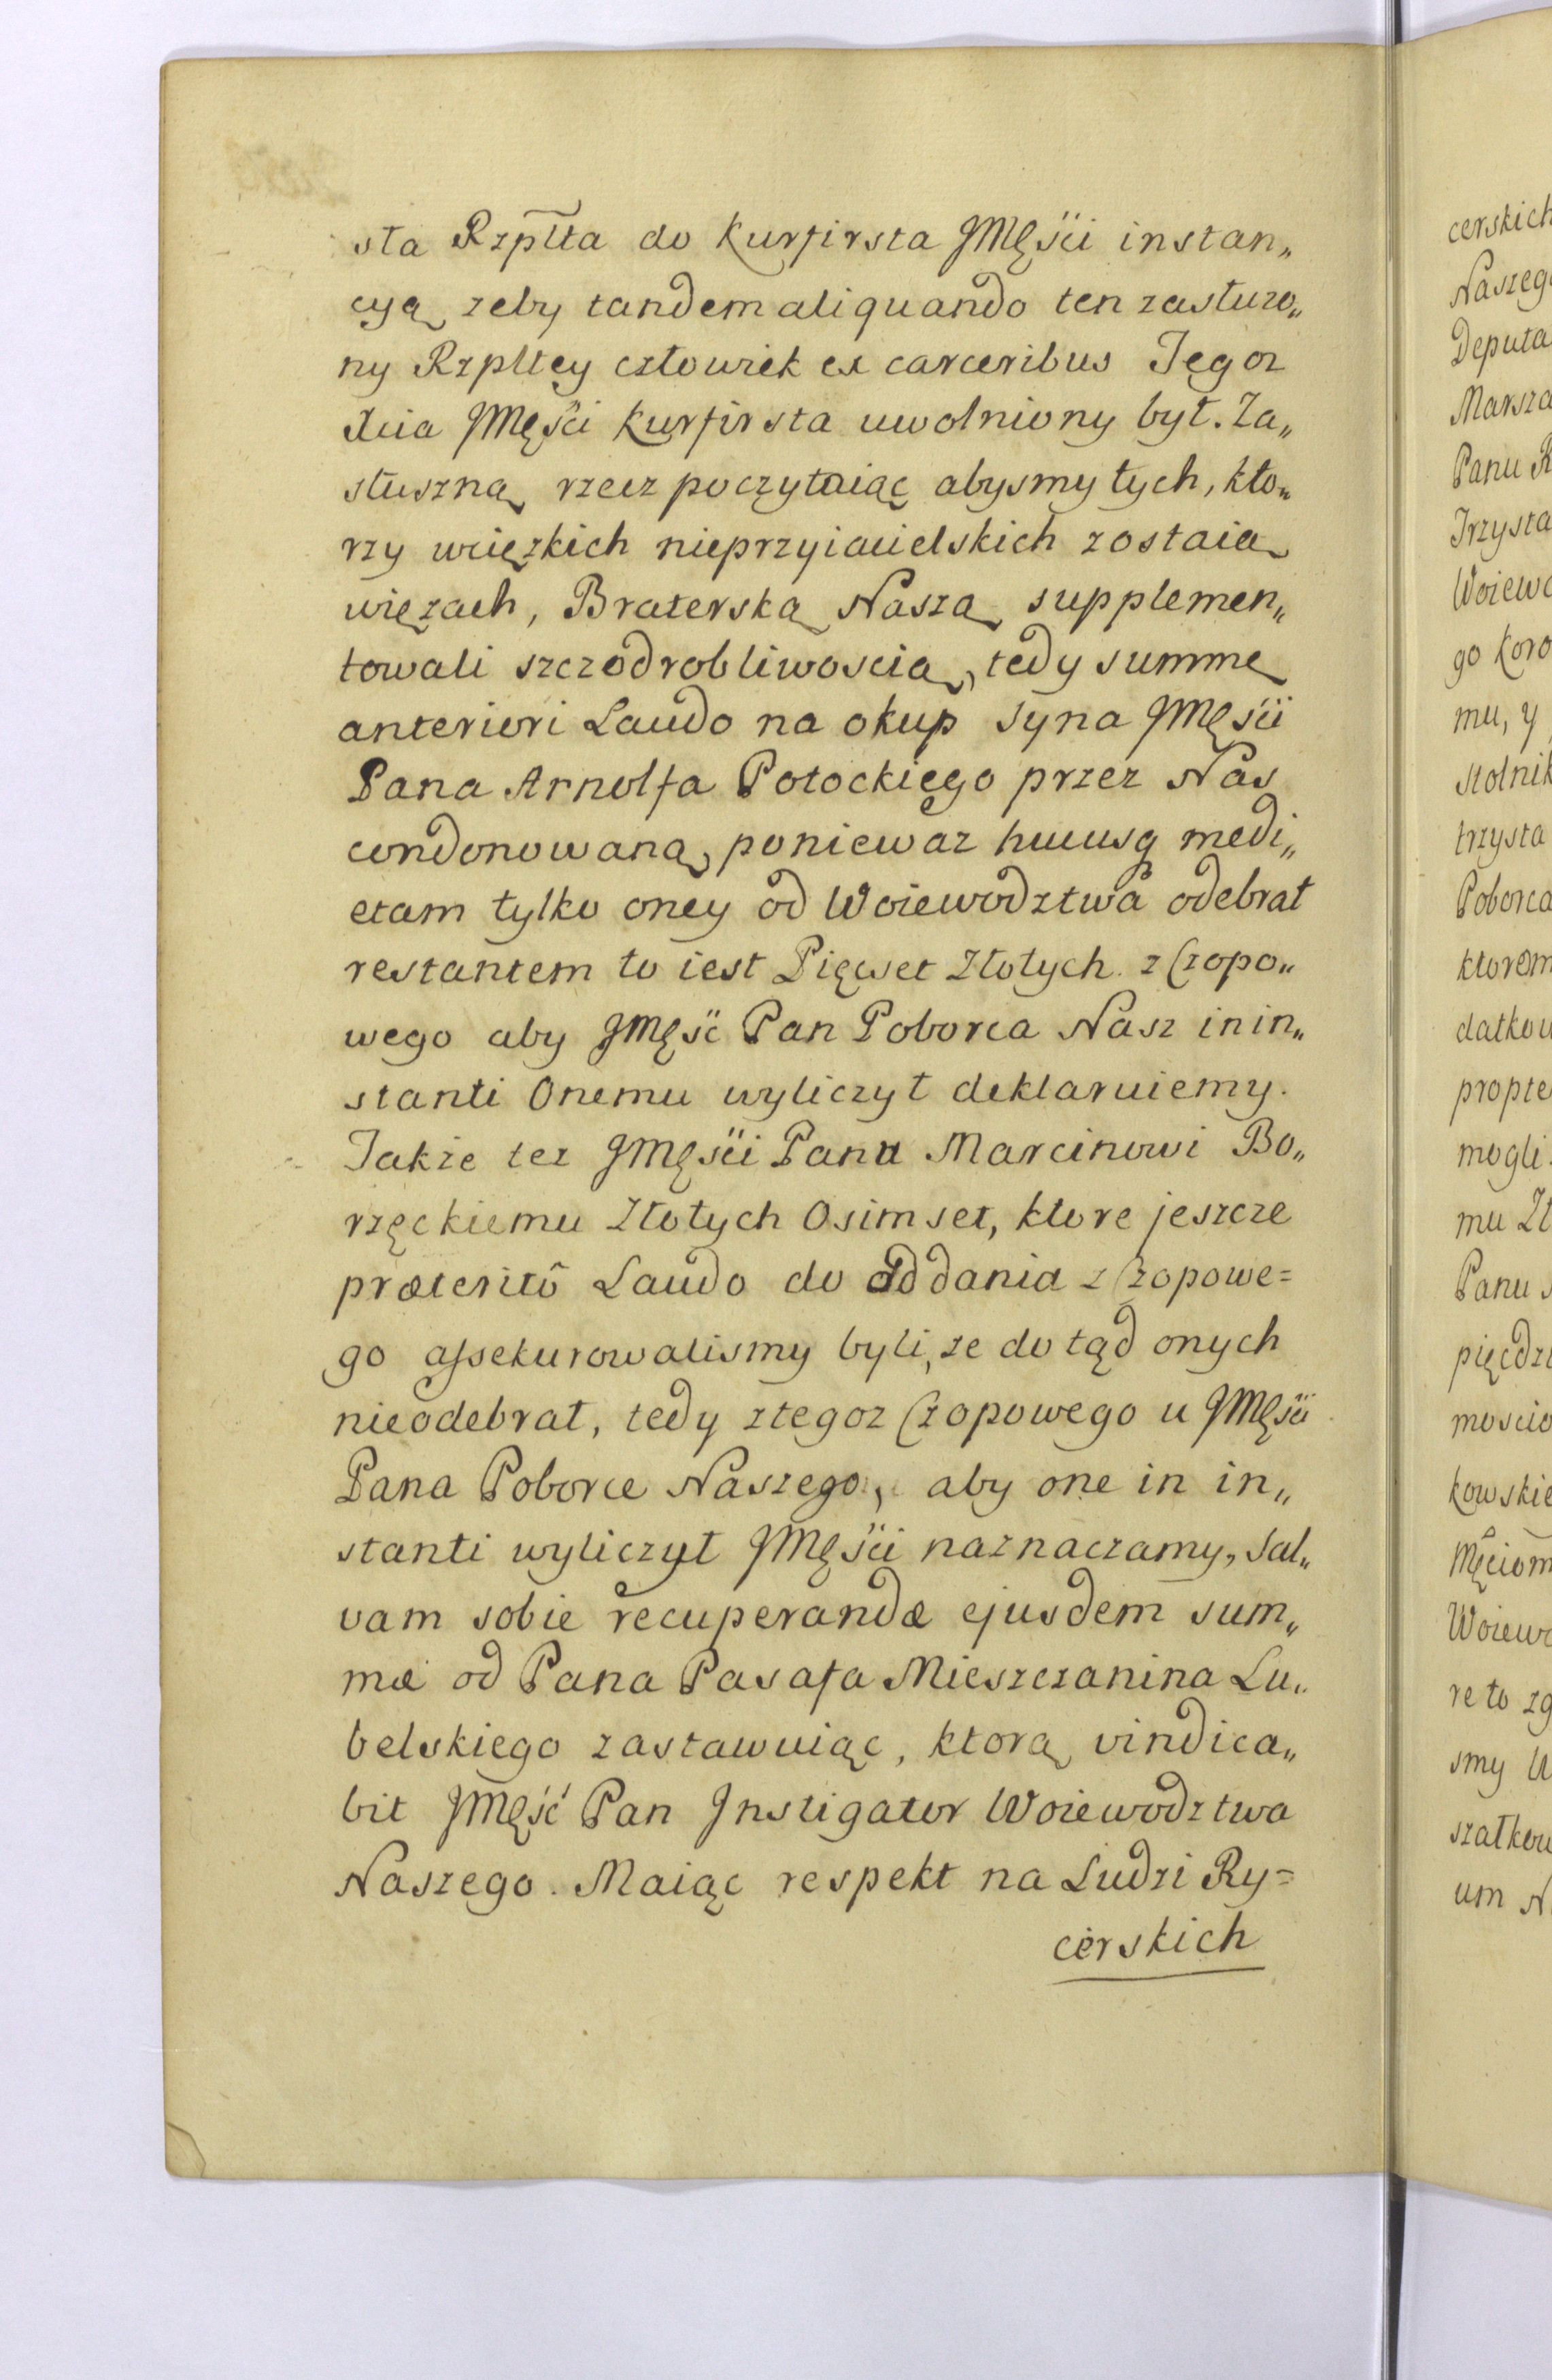 sła Rzpl̃ta do Kurfirsta JMęści instan„
cyą zeby tandem aliquando ten zasłuzo„
ny Rzpltey człowiek ex carceribus Jegoz
Xcia JMęści Kurfirsta uwolniony był. Za„
słuszną rzecz poczytaiąc abysmy tych, kto„
rzy wcięzkich nieprzyiacielskich zostaią
więzach, Braterską Naszą supplemen„
towali szczodrobliwoscią, tedy summę
anteriori Laudo na okup Syna JMęści
Pana Arnolfa Potockiego przez Nas
condonowaną, poniewaz hucusq medi„
etam tylko oney od Woiewodztwa odebrał
restantem to iest Pięcset Złotych z Czopo„
wego aby JMęść Pan Poborca Nasz in in„
stanti Onemu wyliczył deklaruiemy.
Takze tez JMęści Panu Marcinowi Bo„
rzęckiemu Złotych Osimset, ktore jeszcze
præteritô Laudo do oddania z Czopowe=
go assekurowalismy byli, ze do tąd onych
nieodebrał, tedy ztegoz Czopowego u JMęści
Pana Poborce Naszego, aby one in in„
stanti wyliczył JMęści naznaczamy, Sal„
vam sobie recuperandæ ejusdem sum„
mæ od Pana Pasafa Mieszczanina Lu„
belskiego zastawuiąc, ktorą vindica„
bit JMęść Pan Instigator Woiewodztwa
Naszego. Maiąc respekt na Ludzi Ry=
cerskich
cerskich
Naszeg
Deputa
Marsza
Panu R
Trzysta
Woiewo
go Koro
mu, y
Stolnik
trzysta
Poborca
ktorem
datkow
propte
mogli
mu Zł
Panu
pięcdzi
moscio
kowskie
Męciom
Woiewo
re to zg
smy W
szałkow
um N